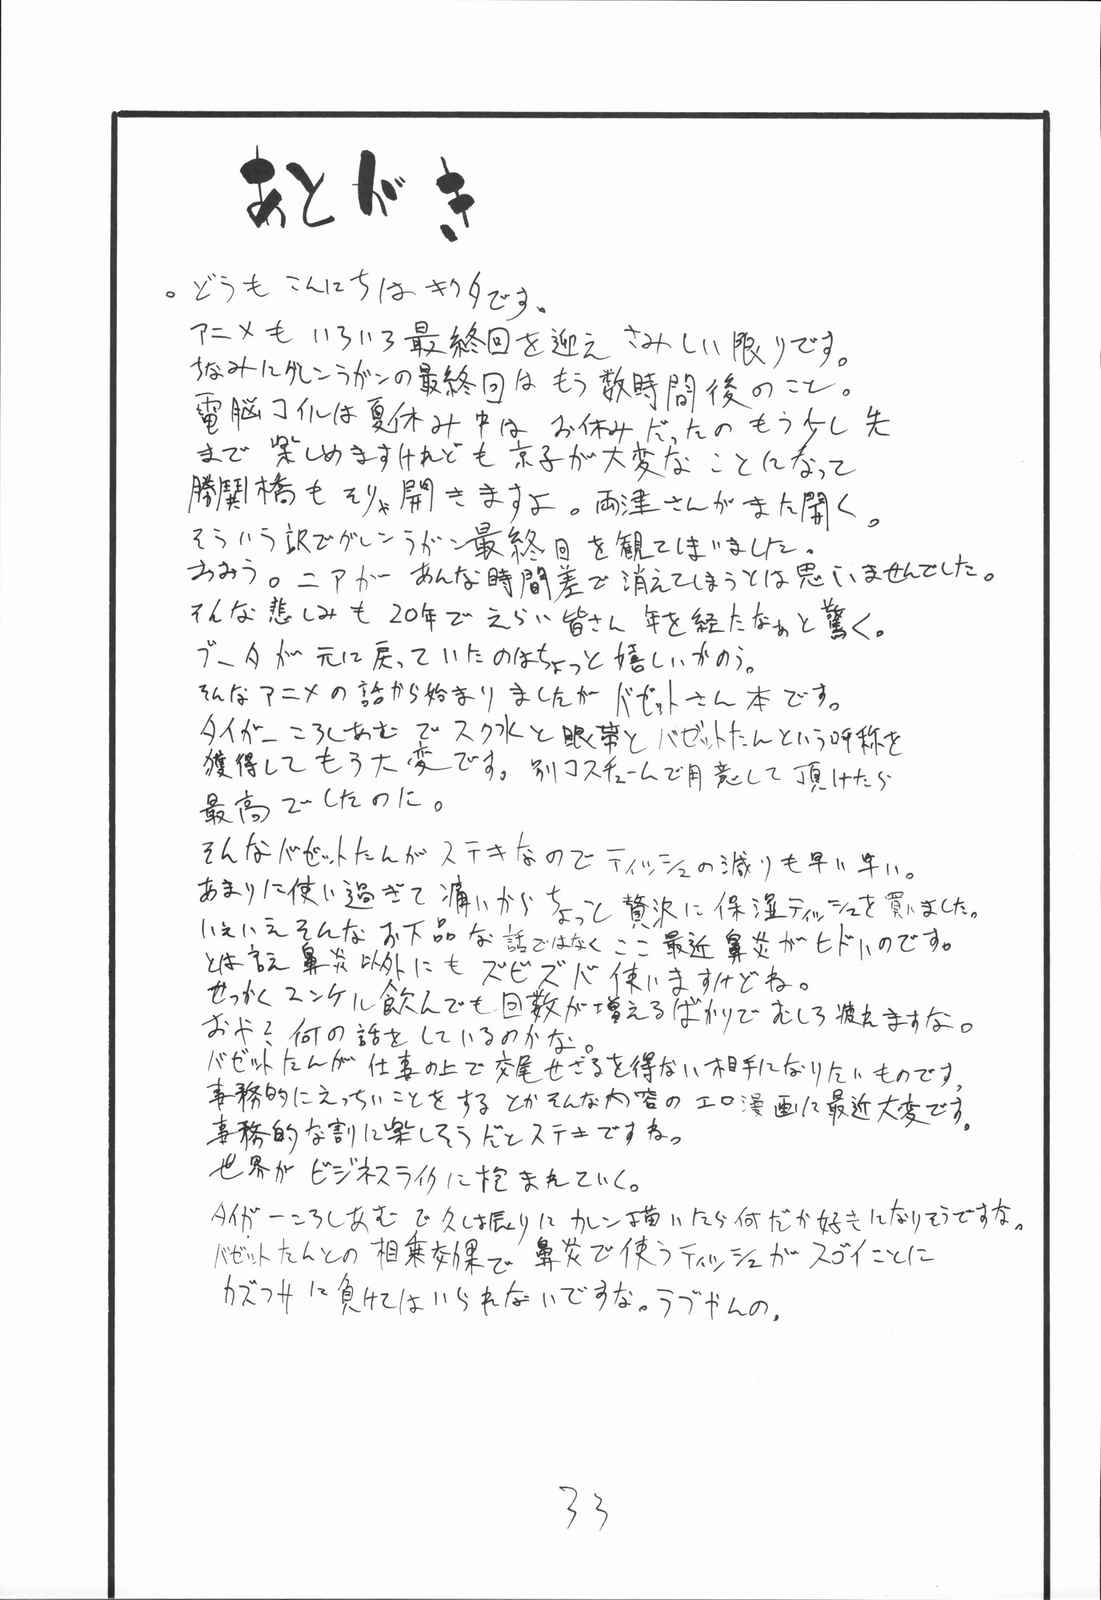 あとがき
。どうもこんにちはキクタです。
アニメもいろいろ最終回を迎えさみしい限りです。
ちなみにグレンラガンの最終回はもう数時間後のこと。
電脳コイルは夏休み中はお休みだったのもう少し先
まで楽しめますけれども京子が大変なことになって
勝鬨橋もそりゃ開きますよ。両津さんがまた開く。
そういう訳でグレンラガン最終回を観てしまいました。
おみう。ニアがあんな時間差で消えてしまうとは思いませんでした。
そんな悲しみも20年でえらい皆さん年を経たなぁと驚く。
ブータが元に戻っていたのはちょっと嬉しいかのう。
そんなアニメの話から始まりましたがバゼットさん本です。
タイガーころしあむでスク水と眼帯とバゼットたんという呼称を
獲得してもう大変です。別コスチュームで用意して頂けたら
最高でしたのに。
そんなバゼットたんがステキなのでティッシュの減りも早い早い。
あまりに使い過ぎて痛いからちょっと贅沢に保湿ティッシュを買いました。
いえいえそんなお下品な話ではなくここ最近鼻炎がヒドいのです。
とは言え鼻炎以外にもズビズバ使いますけどね。
せっかくユンケル飲んでも回数が増えるばかりでむしろ疲れますな。
おや?何の話をしているのかな。
バゼットたんが仕事の上で交尾せざるを得ない相手になりたいものです。
事務的にえっちいことをするとかそんな内容のエロ漫画に最近大変です。
事務的な割に楽しそうだとステキですね。
世界がビジネスライクに包まれていく。
タイガーころしあむで久し振りにカレン描いたら何だか好きになりそうですな。
バゼットたんとの相乗効果で鼻炎で使うティッシュがスゴイことに
カズフサに負けてはいられないですな。ラブやんの。
33